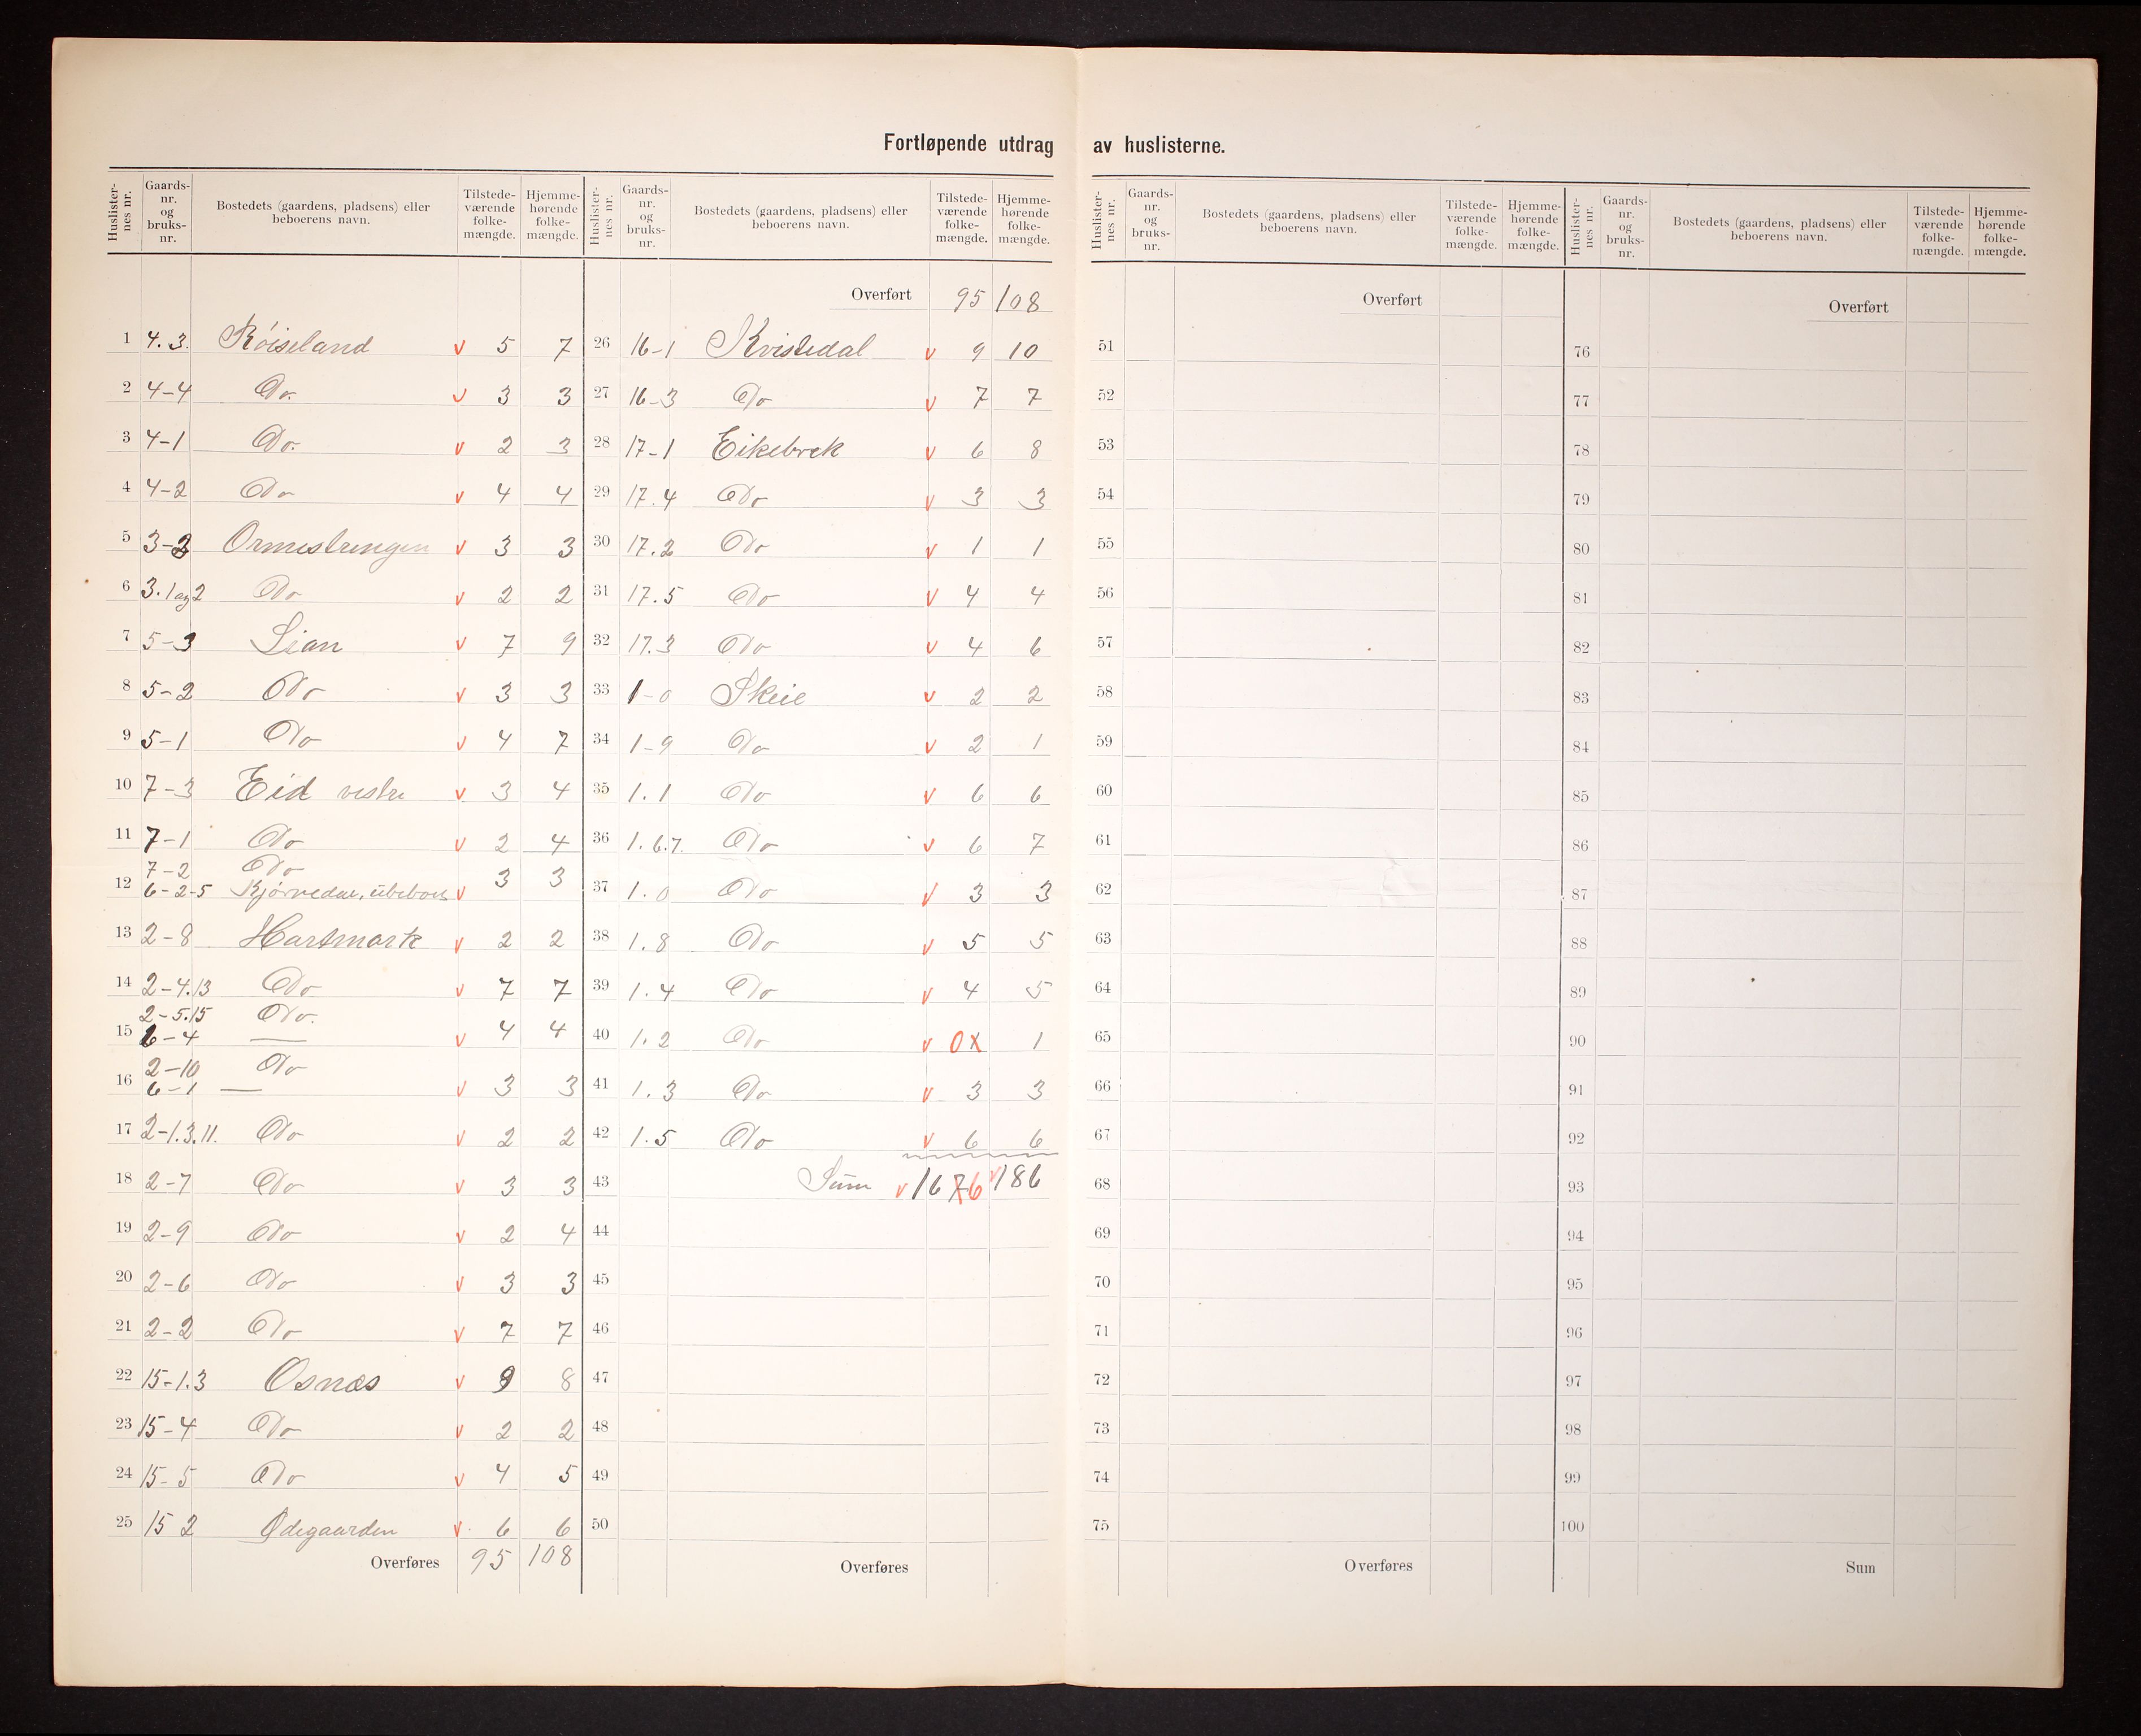 Fortløpende utdrag av huslisterne.
Huslisternes nr. Gaards-nr. og bruks-nr. Bostedets (gaardens, pladsens) eller beboerens navn. Tilstede-værende folke-mængde. Hjemme-hørende folke-mængde.
1 4.3. Røiseland v 5 7
2 4-4 Do. v 3 3
3 4-1 Do. v 2 3
4 4-2 Do v 4 4
5 3-3 Ormestrengen v 3 3
6 3.1 og 2 Do v 2 2
7 5-3 Lian v 7 9
8 5-2 Do v 3 3
9 5-1 Do v 4 7
10 7-3 Eid vestre v 3 4
11 7-1 Do v 2 4
7-2 Do
12 6-2-5 Kjørvedal, ubeboet v 3 3
13 2-8 Hartmark v 2 2
14 2-4.13 Do v 7 7
2-5.15 Do.
15 6-4 — v 4 4
2-10 Do
16 6-1 — v 3 3
17 2-1.3.11. Do v 2 2
18 2-7 Do v 3 3
19 2-9 Do v 2 4
20 2-6 Do v 3 3
21 2-2 Do v 7 7
22 15-1.3 Osnæs v 9 8
23 15-4 Do v 2 2
24 15-5 Do v 4 5
25 15 2 Ødegaarden v 6 6
Overføres 95 108
Huslisternes nr. Gaards-nr. og bruks-nr. Bostedets (gaardens, pladsens) eller beboerens navn. Tilstede-værende folke-mængde. Hjemme-hørende folke-mængde.
Overført 95 108
26 16-1 Kvistedal v 9 10
27 16-3 Do v 7 7
28 17-1 Eikebrek v 6 8
29 17.4 Do v 3 3
30 17.2 Do v 1 1
31 17.5 Do v 4 4
32 17.3 Do v 4 6
33 1-0 Skeie v 2 2
34 1-9 Do v 2 1
35 1.1 Do v 6 6
36 1.6.7. Do v 6 7
37 1.0 Do v 3 3
38 1.8 Do v 5 5
39 1.4 Do v 4 5
40 1.2 Do v 0x 1
41 1.3 Do v 3 3
42 1.5 Do v 6 6
43 Sum v 1676 v 186
44
45
46
47
48
49
50
Overføres
Huslisternes nr. Gaards-nr. og bruks-nr. Bostedets (gaardens, pladsens) eller beboerens navn. Tilstede-værende folke-mængde. Hjemme-hørende folke-mængde.
Overført
51
52
53
54
55
56
57
58
59
60
61
62
63
64
65
66
67
68
69
70
71
72
73
74
75
Overføres
Huslisternes nr. Gaards-nr. og bruks-nr. Bostedets (gaardens, pladsens) eller beboerens navn. Tilstede-værende folke-mængde. Hjemme-hørende folke-mængde.
Overført
76
77
78
79
80
81
82
83
84
85
86
87
88
89
90
91
92
93
94
95
96
97
98
99
100
Sum